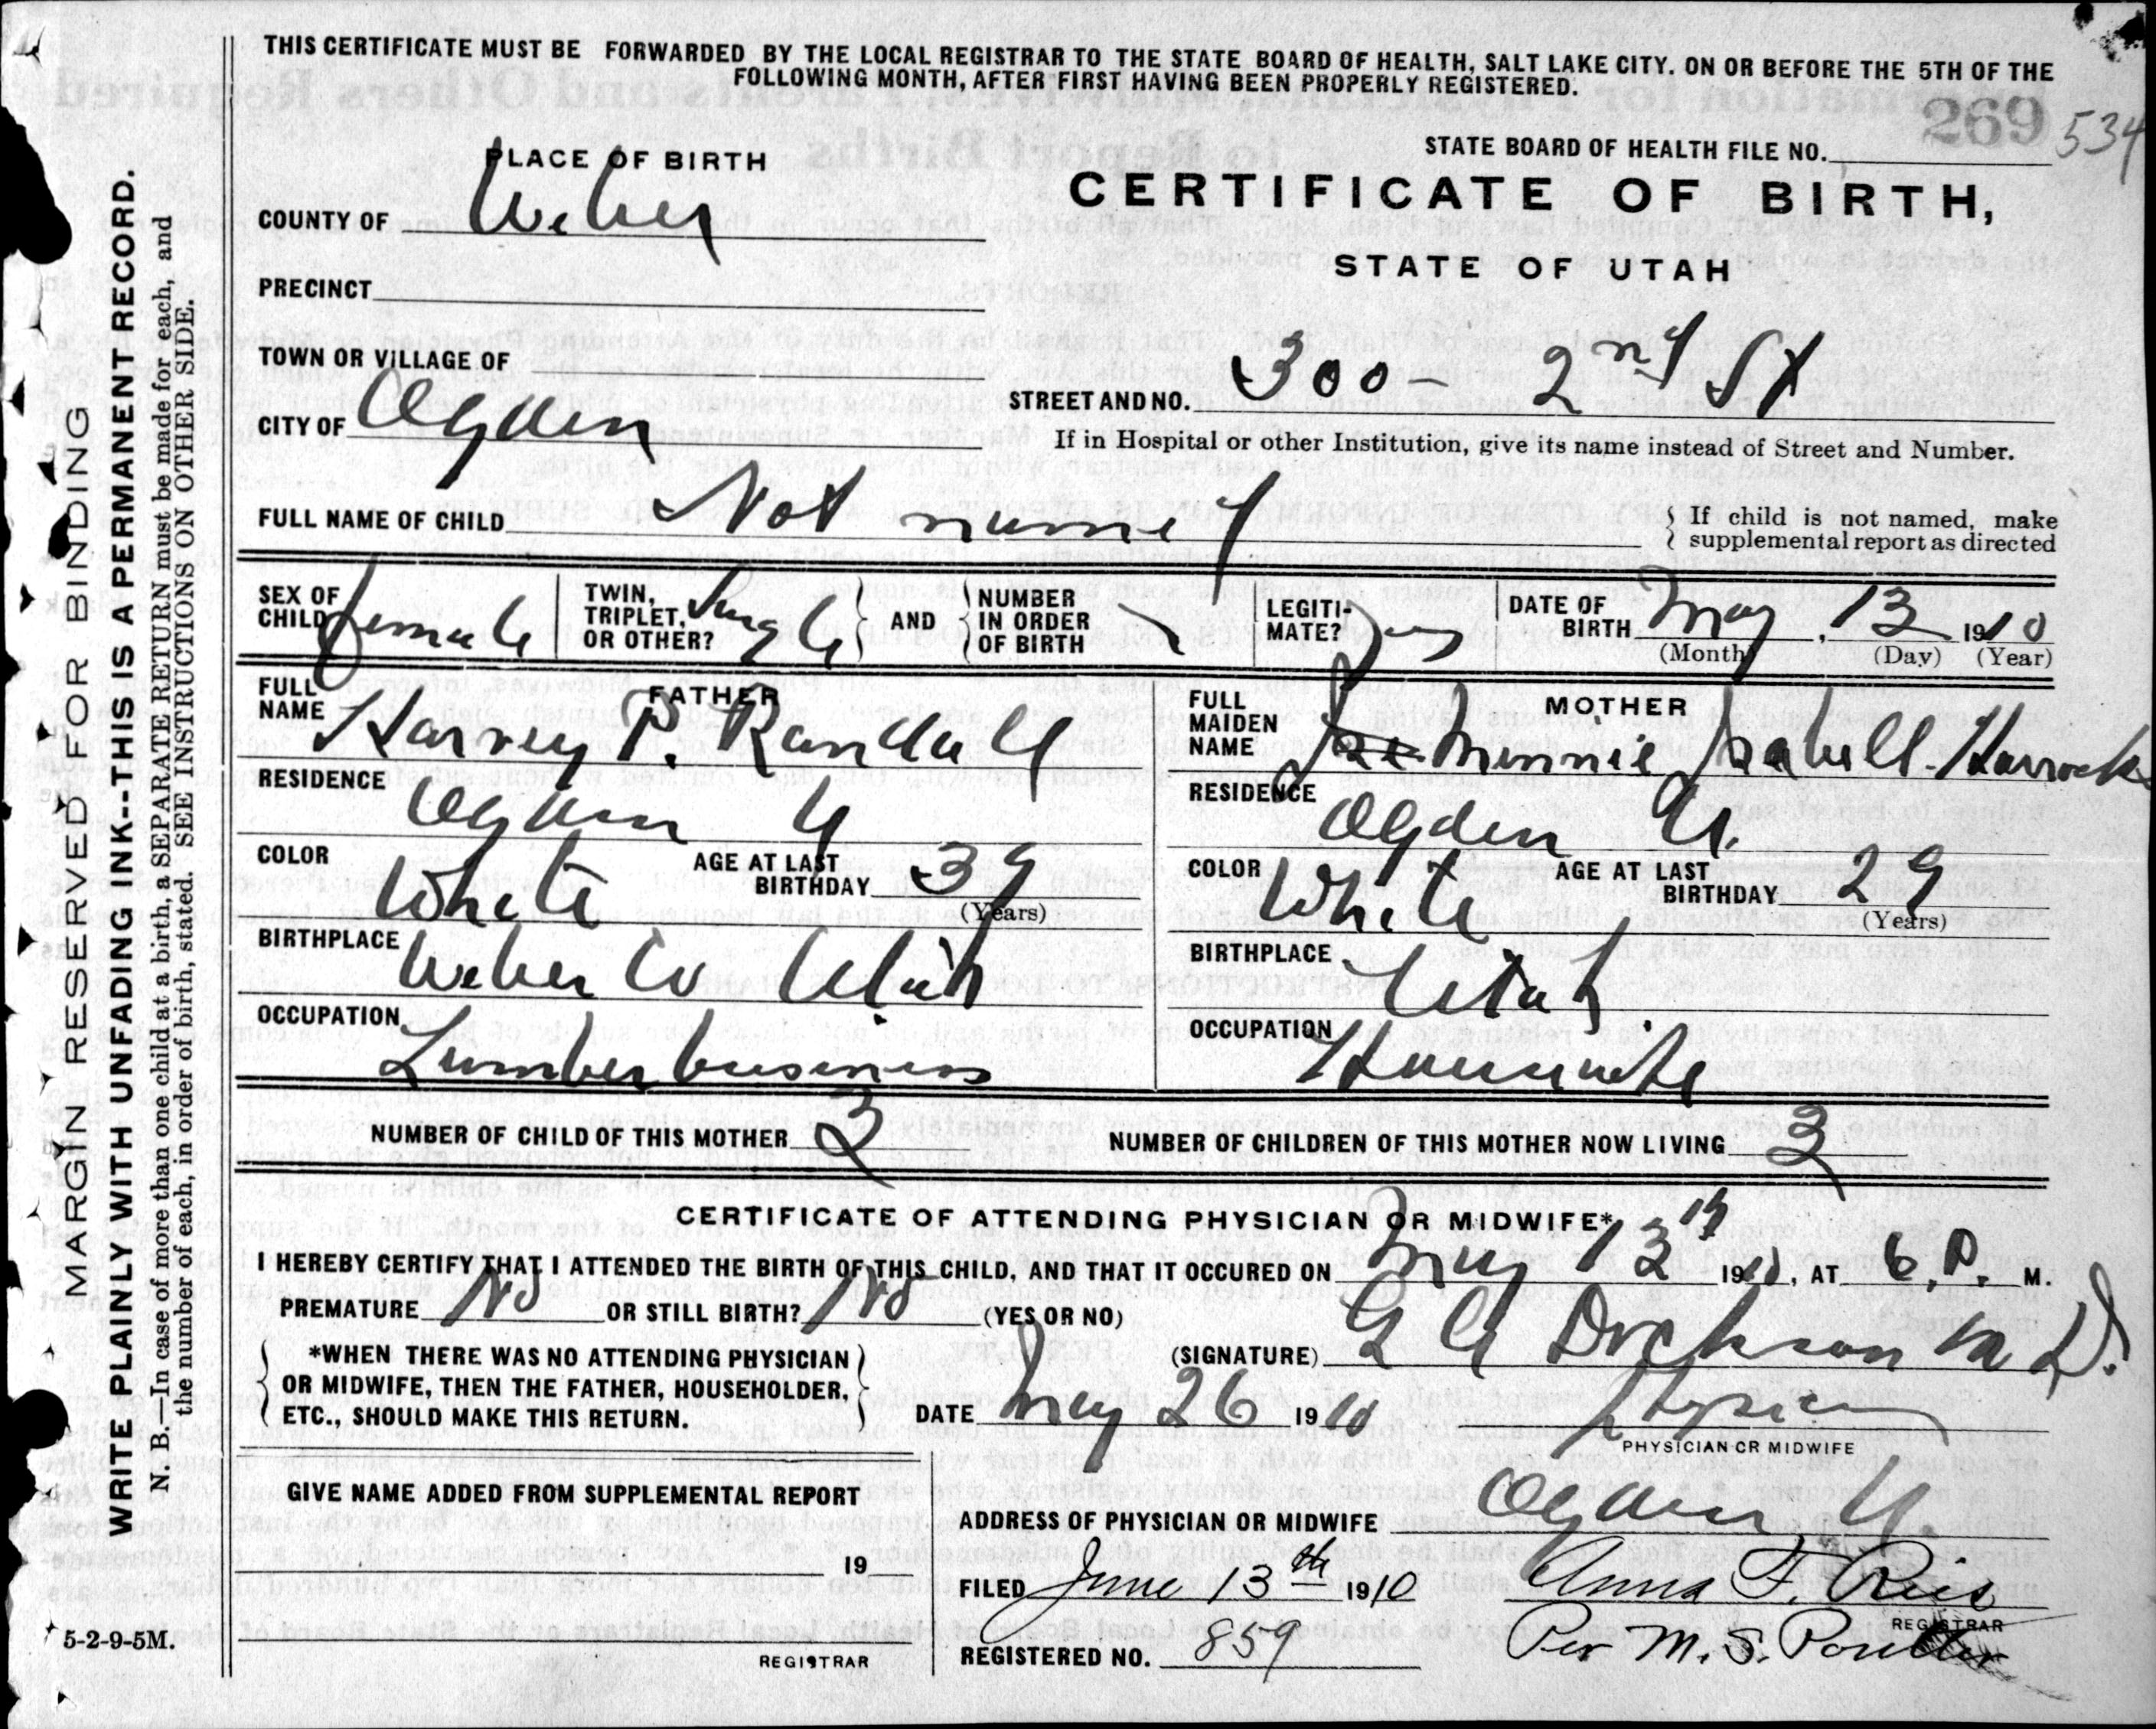 THIS CERTIFICATE MUST BE FORWARDED BY THE LOCAL REGISTRAR TO THE STATE BOARD OF HEALTH, SALT LAKE CITY. ON OR BEFORE THE 5TH OF THE
FOLLOWING MONTH, AFTER FIRST HAVING BEEN PROPERLY REGISTERED.
269 534
PLACE OF BIRTH
STATE BOARD OF HEALTH FILE NO.
CERTIFICATE OF BIRTH,
STATE OF UTAH
COUNTY OF Weber
PRECINCT
TOWN OR VILLAGE OF
CITY OF Ogden
STREET AND NO. 300 - 2nd St
If in Hospital or other Institution, give its name instead of Street and Number.
FULL NAME OF CHILD Not named
If child is not named, make
supplemental report as directed
SEX OF CHILD female
TWIN, TRIPLET, OR OTHER? Single
AND NUMBER IN ORDER OF BIRTH
LEGITIMATE? yes
DATE OF BIRTH May, 13 1910
(Month) (Day) (Year)
FATHER
FULL NAME Harvey P. Randall
RESIDENCE Ogden U
COLOR White AGE AT LAST BIRTHDAY 39
(Years)
BIRTHPLACE Weber Co Utah
OCCUPATION Lumber business
MOTHER
FULL MAIDEN NAME Minnie Isabell Harrocks
RESIDENCE Ogden U.
COLOR White AGE AT LAST BIRTHDAY 29
(Years)
BIRTHPLACE Utah
OCCUPATION Housewife
NUMBER OF CHILD OF THIS MOTHER
NUMBER OF CHILDREN OF THIS MOTHER NOW LIVING
CERTIFICATE OF ATTENDING PHYSICIAN OR MIDWIFE*
I HEREBY CERTIFY THAT I ATTENDED THE BIRTH OF THIS CHILD, AND THAT IT OCCURED ON May 13th 1910, AT 6 P. M.
PREMATURE No OR STILL BIRTH? No (YES OR NO)
*WHEN THERE WAS NO ATTENDING PHYSICIAN
OR MIDWIFE, THEN THE FATHER, HOUSEHOLDER,
ETC., SHOULD MAKE THIS RETURN.
(SIGNATURE) Dickson M D.
DATE May 26 1910 Physician
PHYSICIAN OR MIDWIFE
GIVE NAME ADDED FROM SUPPLEMENTAL REPORT
19
REGISTRAR
ADDRESS OF PHYSICIAN OR MIDWIFE Ogden U.
FILED June 13th 1910 Anna F. Ries
REGISTRAR
REGISTERED NO. 859 Per M. S. Poulter
5-2-9-5M.
MARGIN RESERVED FOR BINDING
WRITE PLAINLY WITH UNFADING INK--THIS IS A PERMANENT RECORD.
N. B.—In case of more than one child at a birth, a SEPARATE RETURN must be made for each, and
the number of each, in order of birth, stated. SEE INSTRUCTIONS ON OTHER SIDE.